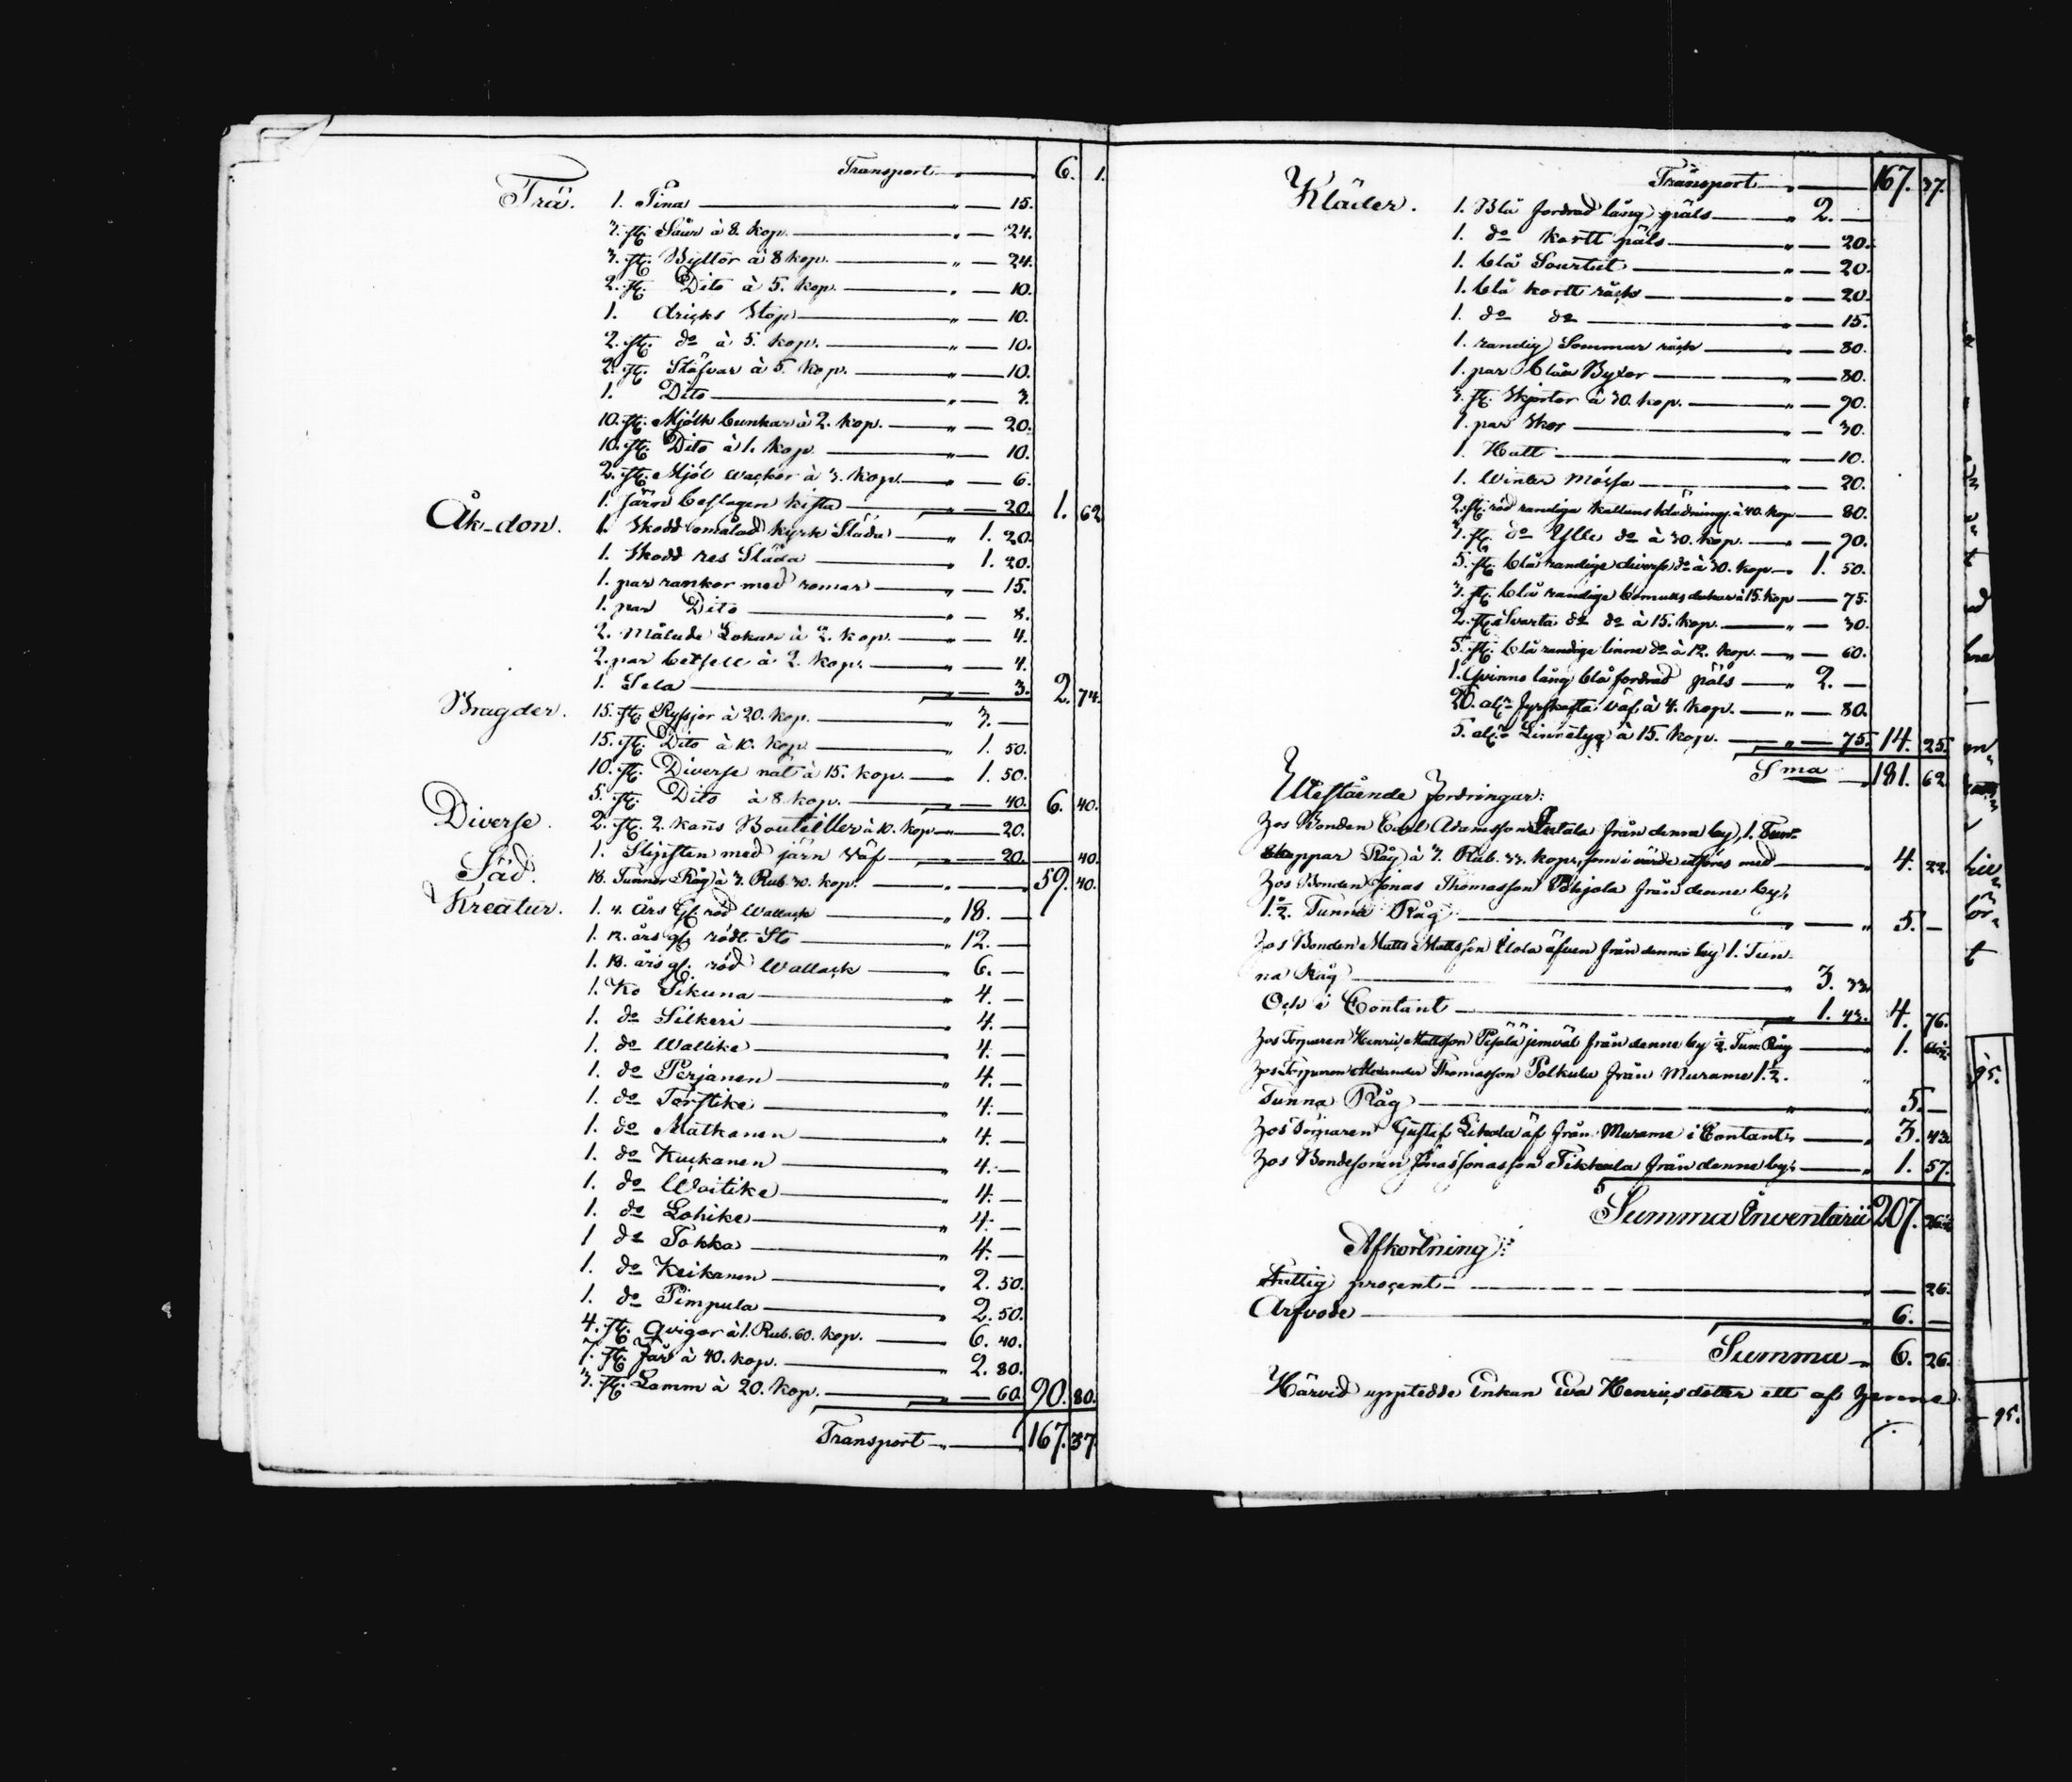 Transport 6. 1.
Trä. 1. Tina 15.
3. st. Såar à 8. kop. 24.
3. st. Byttor à 8 kop. 24.
2. st. Dito à 5. kop. 10.
1. dricks Stop 10.
2. st. do à 5. kop. 10.
2. st. Stäfvar à 5. kop. 10.
1. Dito 3.
10. st. Mjölk bunkar à 2. kop. 20.
10. st. Dito à 1. kop. 10.
2. st. Mjöl wackor à 3. kop. 6.
1. järn beslagen kista 20. 1. 62.
Åk-don. 1. Skodd omålad kyrk Släda 1. 20.
1. Skodd res Släda 1. 20.
1. par rankor med romar 15.
1. par Dito 8.
2. Målade Lokar à 2. kop. 4.
2. par betsell à 2. kop. 4.
1. Sela 3. 2. 74.
Bragder. 15. st. Ryssjor à 20. kop. 3. —
15. st. Dito à 10. kop. 1. 50.
10. st. Diverse nät à 15. kop. 1. 50.
5. st. Dito à 8. kop. 40. 6. 40.
Diverse. 2. st. 2. kanns Bouteiller à 10. kop 20.
1. Slipsten med järn Väf 20. — 40.
Säd. 18. Tunnor Råg à 3. Rub. 30. kop. 59. 40.
Kreatur. 1. 4. års gl. röd Wallack 18. —
1. 12. års gl. rödt Sto 12. —
1. 18. års gl. röd Wallack 6. —
1. Ko Sikuna 4. —
1. do Silkeri 4. —
1. do Wallike 4. —
1. do Perjanen 4. —
1. do Torstike 4. —
1. do Matkanen 4. —
1. do Kuckanen 4. —
1. do Woitike 4. —
1. do Lohike 4. —
1 do Tokka 4. —
1. do Keikanen 2. 50.
1. do Pimpula 2. 50.
4. st. Qvigor à 1. Rub. 60. kop. 6. 40.
7. st. Får à 40. kop. 2. 80.
3. st. Lamm à 20. kop. 60. 90. 80.
Transport 167. 37.
Transport 167. 37.
Kläder. 1. Blå fordrad lång päls 2. —
1. do kortt päls 20.
1. blå Sourtut 20.
1. blå kortt råck 20.
1. do do 15.
1. randig Sommar råck 80.
1. par blåa Byxor 80.
3. st. Skjortor à 30. kop. 90.
1. par Skor 30.
1. Hatt 10.
1. Winter Mössa 20.
2. st. röd randiga Kattuns klädning. à 40. kop 80.
3. st. do Ylle do à 30. kop. 90.
5. st. blå randige diverse do à 30. kop. 1. 50.
3. st. blå randige bomulls dukar à 15. kop 75.
2. st. Svarta do do à 15. kop. 30.
5. st. blå randige linne do à 12. kop. 60.
1. Qvinno lång blå fordrad päls 2. —
20. aln. fyrskafta väf à 4. kop. 80.
5. aln. Linnetyg à 15. kop. 75. 14. 25.
Sma 181. 62.
Utestående fordringar:
Hos Bonden Carl Adamsson från denna by, 1. Tun-
kappar Råg à 3. Rub. 33. kop., som i värde utföres med 4. 22.
Hos Bonden Jonas Thomasson Pohjola från denne by,
1 1/2. Tunna Råg 5. —
Hos Bonden Matts Mattsson Ylola äfven från denna by 1. Tun-
na Råg 3. 33.
Och i Contant 1. 43. 4. 76.
Hos Torparen Henric Mattsson jemväl från denne by 1/2. Tun. Råg 1.
Hos Torparen Alexander Thomasson Palkula från Murame 1 1/2.
Tunna Råg 5. —
Hos Torparen Gustaf äf från Murame i Contant 3. 43.
Hos Bondesonen Jonas Jonasson Tikkala från denne by 1. 57.
Summa Inventarii 207. 26 1/2
Afkortning:
fattig procent — 26.
Arfvode 6. —
Summa 6. 26.
Härvid upptedde Enkan Eva Henricsdotter ett af henne